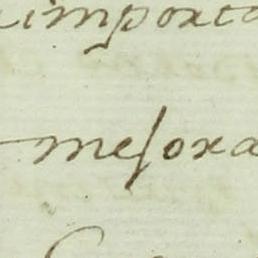 importa
mesora